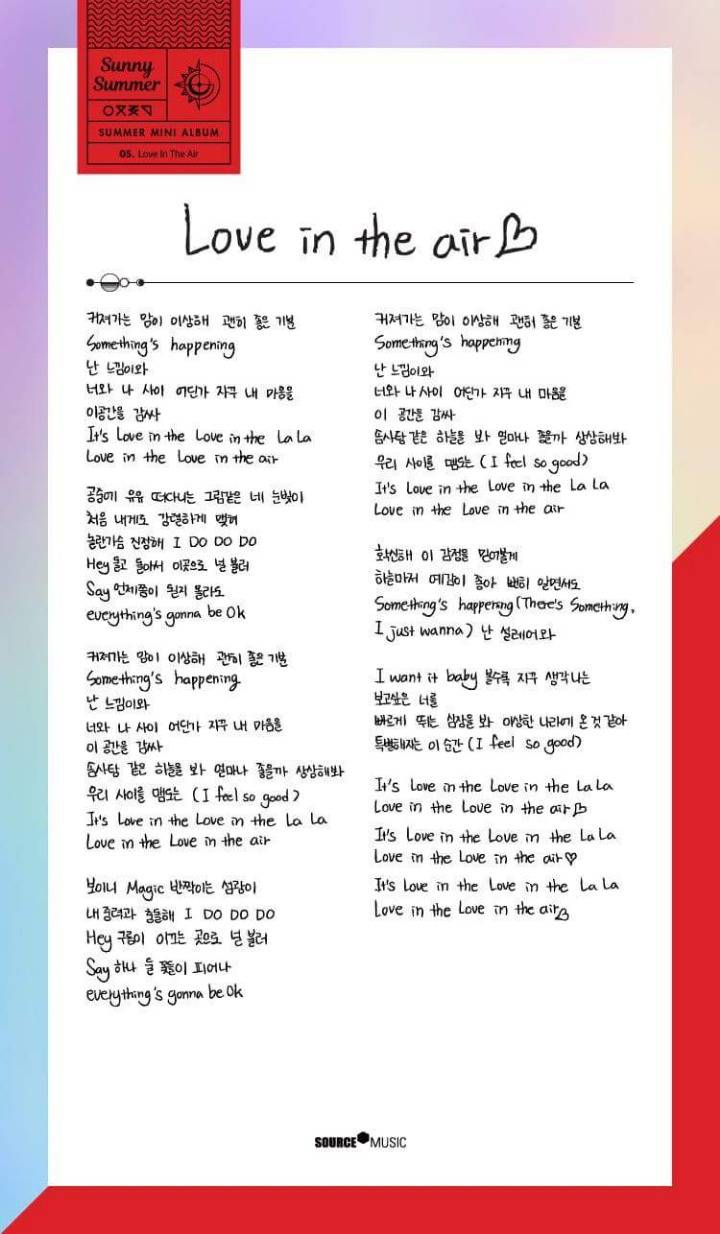 Sunny
Summer
SUMMER MINI ALBUM
05. Love In The Air
Love in the air
커져가는 맘이 이상해 괜히 좋은 기분
Something's happening
난 느낌이와
너와 나 사이 어딘가 자꾸 내 마음을
이공간을 감싸
It's Love in the Love in the La La
Love in the Love in the air
공중에 유유 떠다니는 그림같은 네 눈빛이
처음 내게도 강렬하게 맺혀
놀란가슴 진정해 I DO DO DO
Hey 돌고 돌아서 이곳으로 널 불러
Say 언제쯤이 될지 몰라도
everything's gonna be Ok
커져가는 맘이 이상해 괜히 좋은 기분
Something's happening
난 느낌이와
너와 나 사이 어딘가 자꾸 내 마음을
이 공간을 감싸
솜사탕 같은 하늘을 봐 얼마나 좋을까 상상해봐
우리 사이를 맴도는 (I feel so good)
It's Love in the Love in the La La
Love in the Love in the air
보이니 Magic 반짝이는 섬광이
내 중력과 충돌해 I DO DO DO
Hey 구름이 이끄는 곳으로 널 불러
Say 하나 둘 꽃들이 피어나
everything's gonna be Ok
커져가는 맘이 이상해 괜히 좋은 기분
Something's happening
난 느낌이와
너와 나 사이 어딘가 자꾸 내 마음을
이 공간을 감싸
솜사탕 같은 하늘을 봐 얼마나 좋을까 상상해봐
우리 사이를 맴도는 (I feel so good)
It's Love in the Love in the La La
Love in the Love in the air
확신해 이 감정을 믿어볼게
하늘마저 예감이 좋아 뻔히 알면서도
Something's happening (There's Something,
I just wanna) 난 설레어와
I want it baby 볼수록 자꾸 생각나는
보고싶은 너를
빠르게 뛰는 심장을 봐 이상한 나라에 온 것 같아
특별해지는 이 순간 (I feel so good)
It's Love in the Love in the La La
Love in the Love in the air
It's Love in the Love in the La La
Love in the Love in the air
It's Love in the Love in the La La
Love in the Love in the air
SOURCE MUSIC